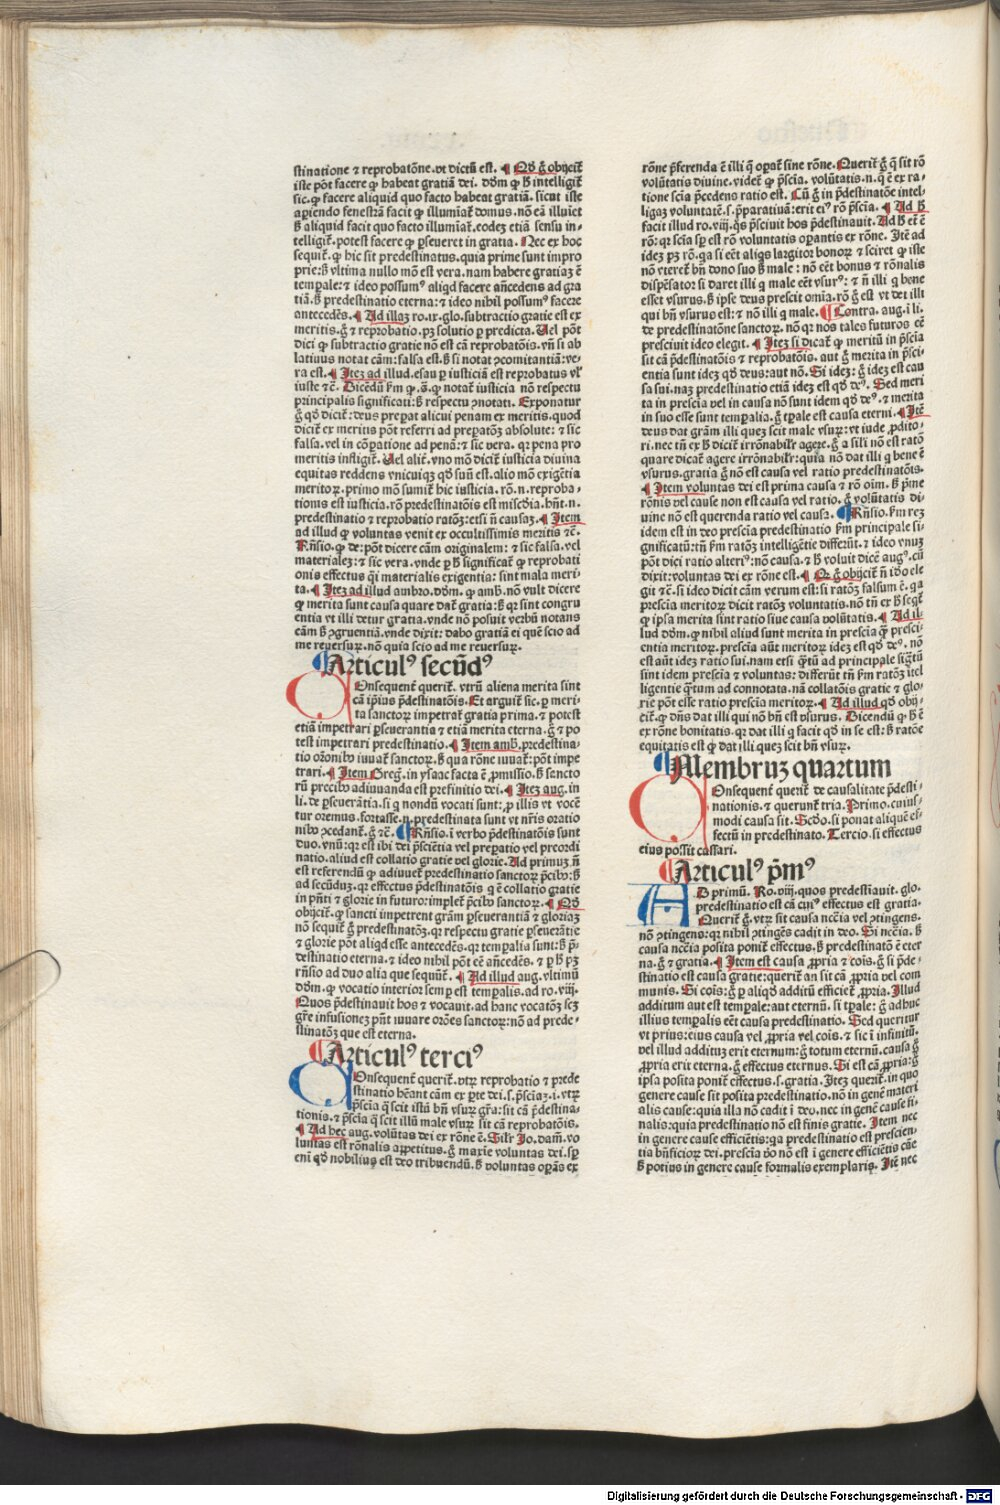 stinatione ⁊ reprobatōne.vt dictū est. ¶ Qđ g̊ obijcit̃
iste põt facere ꝙ habeat gratiā dei. dōm ꝙ ħ intelligit̃
sic.ꝙ facere aliquid quo facto habeat gratiā. sicut iste
apiendo fenestrā facit ꝙ illumīat̃ domus. nō eā illuīet
ħ aliquid facit quo facto illumīat̃. eodez etiā sensu in-
telligit̃.potest facere ꝙ ꝑseueret in gratia. Nec ex hoc
sequit̃. ꝙ hic sit predestinatus.quia prime sunt impro
prie:ħ vltima nullo mō est vera. nam habere gratiaꝫ ē
tempale:⁊ ideo possumꝰ aliqd facere añcedens ad gra
tiā.ħ predestinatio eterna:⁊ ideo nihil possumꝰ facere
antecedēs. ¶ Ad illaꝫ ro.ix.glo.subtractio gratie est ex
meritis.g̊ ⁊ reprobatio.pꝫ solutio ꝑ predicta. Uel põt
dici ꝙ subtractio gratie nō est cā reprobatōis.vñ si ab
latiuus notat cām:falsa est.ħ si notat ꝯcomitantiā:ve-
ra est. ¶ Itez ad illud.esau ꝑ iusticiā est reprobatus vl̃
iuste ⁊c̄. Dicēdū km ꝙ .a.ꝙ notat̃ iusticia nō respectu
principalis significati:ħ respectu ꝯnotati. Exponatur
g̊ qđ dicit̃:deus prepat alicui penam ex meritis.quod
dicit̃ ex meritis põt referri ad prepatōꝫ absolute: ⁊ sic
falsa.vel in cōpatione ad penā:⁊ sic vera. qꝛ pena pro
meritis infligit̃. Uel alit̃.vno mō dicit̃ iusticia diuina
equitas reddēns vnicuiqꝫ qđ suū est.alio mō exigētia
meritoꝝ.primo mō sumit̃ hic iusticia. rō.n.reproba-
tionis est iusticia.rō predestinatōis est misc̄dia.bñt.n.
predestinatio ⁊ reprobatio ratōꝫ:etsi ñ causaꝫ. ¶ Item
ad illud ꝙ voluntas venit ex occultissimis meritis ⁊c̄.
Rñsio.ꝙ de:põt dicere cām originalem: ⁊ sic falsa.vel
materialeꝫ:⁊ sic vera.vnde ꝑ ħ significat̃ ꝙ reprobati
onis effectus qͥ materialis exigentia: sint mala meri-
ta. ¶ Itez ad illud ambro.dōm. ꝙ amb.nō vult dicere
ꝙ merita sunt causa quare dat̃ gratia:ħ qꝛ sint congru
entia vt illi detur gratia.vnde nō posuit verbū notans
cām ħ ꝯgruentiā.vnde dixit: dabo gratiā ei quē scio ad
me reuersuꝝ.nō quia scio ad me reuersuꝝ.
¶Articulꝰ secūdꝰ
COnsequent̃ querit̃. vtrū aliena merita sint
cā ip̄ius p̄destinatōis. Et arguit̃ sic.ꝑ meri-
ta sanctoꝝ impetrat̃ gratia prima. ⁊ potest
etiā impetrari ꝑseuerantia ⁊ etiā merita eterna.g̊ ⁊ po
test impetrari predestinatio. ¶ Item amb.predestina-
tio orōnibꝰ iuuat̃ sanctoꝝ.ħ qua rōne iuuat̃:põt impe
trari. ¶ Item Greg.in ysaac facta ē ꝓmissio.ħ sancto
rū precibꝰ adiuuanda est prefinitio dei. ¶ Itez aug.in
li.de ꝑseuerātia.si q̃ nondū vocati sunt:ꝓ illis vt vocē
tur oremus.fortasse.n.predestinata sunt vt nr̄is oratio
nibꝰ ꝯcedant̃.g̊ ⁊c̄. ¶ Rñsio.i verbo p̄destinatōis sunt
duo.vnū:qꝛ est ibi dei p̄sciētia vel prepatio vel preordi
natio.aliud est collatio gratie vel glorie. Ad primuꝫ.ñ
est referendū ꝙ adiuuet̃ predestinatio sanctoꝝ p̄cibꝰ:ħ
ad secūduꝫ.qꝛ effectus p̄destinatōis q̃ ē collatio gratie
in p̄nti ⁊ glorie in futuro:implet̃ p̄cibꝰ sanctoꝝ. ¶ Qđ
obijcit̃.ꝙ sancti impetrent grām ꝑseuerantiā ⁊ gloriaꝫ
nō sequit̃ g̊ predestinatōꝫ.qꝛ respectu gratie ꝑseuerātie
⁊ glorie põt aliqd esse antecedēs.qꝛ tempalia sunt:ħ p̄-
destinatio eterna.⁊ ideo nihil põt eē añcedēs. ⁊ ꝑ ħ pꝫ
rñsio ad duo alia que sequūt̃. ¶ Ad illud aug.vltimū
dōm.ꝙ vocatio interior semꝑ est tempalis.ad ro.viij.
Quos p̄destinauit hos ⁊ vocauit.ad hanc vocatōꝫ seꝫ
grē infusioneꝫ p̄nt iuuare orōes sanctoꝝ:nō ad prede-
stinatōꝫ que est eterna.
¶Articulꝰ terciꝰ
COnsequent̃ querit̃.vtꝝ reprobatio ⁊ prede
stinatio hēant cām ex ꝑte dei.s.p̄sciaꝫ.i.vtꝝ
p̄scia q̃ scit istū bñ vsuꝝ gr̄a:sit cā p̄destina-
tionis.⁊ p̄scia q̃ scit illū male vsuꝝ sit cā reprobatōis.
¶ Ad hec aug.volūtas dei ex rōne ē. Silr Jo.dam̄.vo
luntas est rōnalis appetitus.g̊ maxīe voluntas dei.sꝑ
enī qđ nobilius est deo tribuendū.ħ voluntas opās ex
rōne p̄ferenda ē illi q̃ opat̃ sine rōne. Querit̃ g̊ q̃ sit rō
volūtatis diuine.videt̃ ꝙ p̄scia. volūtatis.n.q̃ ē ex ra-
tione scīa p̄cedens ratio est. Cū g̊ in p̄destinatōe intel-
ligaꝫ voluntatē.s.p̄paratiuā:erit eiꝰ rō p̄scia. ¶ Ad ħ
facit illud ro.viij.q̄s p̄sciuit hos p̄destinauit. Ad ħ et̄ ē
rō: qꝛ scīa sꝑ est rō voluntatis opantis ex rōne. Itē ad
idez pꝫ rō.qa si eēt aliqs largitor bonoꝝ ⁊ sciret ꝙ iste
nō vteret̃ bñ dono suo ħ male : nō eēt bonus ⁊ rōnalis
dispēsator si daret illi q̃ male eēt vsurꝰ: ⁊ ñ illi q̃ bene
esset vsurus.ħ ipse deus prescit omīa.rō g̊ est vt det illi
qui bñ vsurus est:⁊ nō illi q̃ male. ¶ Contra. aug.i li.
de predestinatōne sanctoꝝ. nō qꝛ nos tales futuros eē
presciuit ideo elegit. ¶ Itez si dicat̃ ꝙ meritū in p̄scia
sit cā p̄destinatōis ⁊ reprobatōis. aut g̊ merita in p̄sci-
entia sunt idez qđ deus:aut nō. Si ideꝫ: g̊ ideꝫ est cau
sa sui.naꝫ predestinatio etiā ideꝫ est qđ deꝰ. Sed meri
ta in prescia vel in causa nō sunt idem qđ deꝰ.⁊ merita
in suo esse sunt tempalia.g̊ tꝑale est causa eterni. ¶ Itē
deus dat grām illi quez scit male vsuꝝ: vt iude ꝓdito-
ri.nec tñ ex ħ dicit̃ irrōnabilr agere.g̊ a sili nō est ratō
quare dicat̃ agere irrōnabilr:quia nō dat illi q̃ bene ē
vsurus.gratia g̊ nō est causa vel ratio predestinatōis.
¶ Item voluntas dei est prima causa ⁊ rō oīm. ħ prime
rōnis vel cause non est causa vel ratio. g̊ volūtatis di-
uine nō est querenda ratio vel causa. ¶ Rñsio.km rez
idem est in deo prescia predestinatio km principale si-
gnificatū:tñ km ratōꝫ intelligētie differūt.⁊ ideo vnuꝫ
põt dici ratio alteriꝰ:nō causa.⁊ ħ voluit dicē augꝰ.cū
dixit:voluntas dei ex rōne est. ¶ Qđ g̊ obijcit̃ ñ īdō ele
git ⁊c̄.si ideo dicit cām verum est:si ratōꝫ falsum ē.qa
prescia meritoꝝ dicit ratōꝫ voluntatis.nō tñ ex ħ seqt̃
ꝙ ipsa merita sint ratio siue causa volūtatis. ¶ Ad il-
lud dōm.ꝙ nihil aliud sunt merita in prescia q̄ꝫ presci-
entia meritoꝝ.prescia aūt meritoꝝ ideꝫ est qđ deꝰ. nō
est aūt idez ratio sui.nam etsi q̄tū ad principale sig̃tū
sint idem prescia ⁊ voluntas: differūt tñ km ratōꝫ ītel
ligentie q̄tum ad connotata.nā collatōis gratie ⁊ glo-
rie põt esse ratio prescia meritoꝝ. ¶ Ad illud qđ obij-
cit̃.ꝙ dn̄s dat illi qui nō bñ est vsurus. Dicendū ꝙ ħ ē
ex rōne bonitatis.qꝛ dat illi q̃ facit qđ in se est:ħ ratōe
equitatis est ꝙ dat illi quez scit bñ vsuꝝ.
¶Membruꝫ quartum
COnsequent̃ querit̃ de causalitate p̄desti-
nationis.⁊ querunt̃ tria. Primo.cuius-
modi causa sit. Scđo.si ponat aliquē ef-
fectū in predestinato. Tercio.si effectus
eius possit cassari.
¶Articulꝰ pm̄ꝰ
AD primū. Ro.viij.quos predestīauit.glo.
predestinatio est cā cuiꝰ effectus est gratia.
Querit̃ g̊.vtꝝ sit causa ncc̄ia vel ꝯtingens.
nō ꝯtingens:qꝛ nihil ꝯtingēs cadit in deo. Si ncc̄ia.ħ
causa ncc̄ia posita ponit̃ effectus.ħ predestinatō ē eter
na.g̊ ⁊ gratia. ¶ Item est causa ꝓpria ⁊ cōis.g̊ si p̄de-
stinatio est causa gratie:querit̃ an sit cā ꝓpria vel com
munis. Si cōis:g̊ ꝑ aliqđ additū efficiet̃ ꝓpria. Illud
additum aut est tempale:aut eternū. si tꝑale: g̊ adhuc
illius tempalis eēt causa predestinatio. Sed queritur
vt prius:eius causa vel ꝓpria vel cōis.⁊ sic ī infinitū.
vel illud addituꝫ erit eternum:g̊ totum eternū.causa g̊
ꝓpria erit eterna.g̊ effectus eternus. Si est cā ꝓpria:g̊
ipsa posita ponit̃ effectus.s.gratia. Itez querit̃.in quo
genere cause sit posita predestinatio.nō in genē materi
alis cause:quia illa nō cadit ī deo.nec in genē cause fi-
nalis:quia predestinatio nō est finis gratie. Item nec
in genere cause efficiētis:qa predestinatio est prescien-
tia bñficioꝝ dei.prescīa vo nō est ī genere efficiētis cāe
ħ potius in genere cause formalis exemplaris. Itē nec
Digitalisierung gefördert durch die Deutsche Forschungsgemeinschaft - DFG